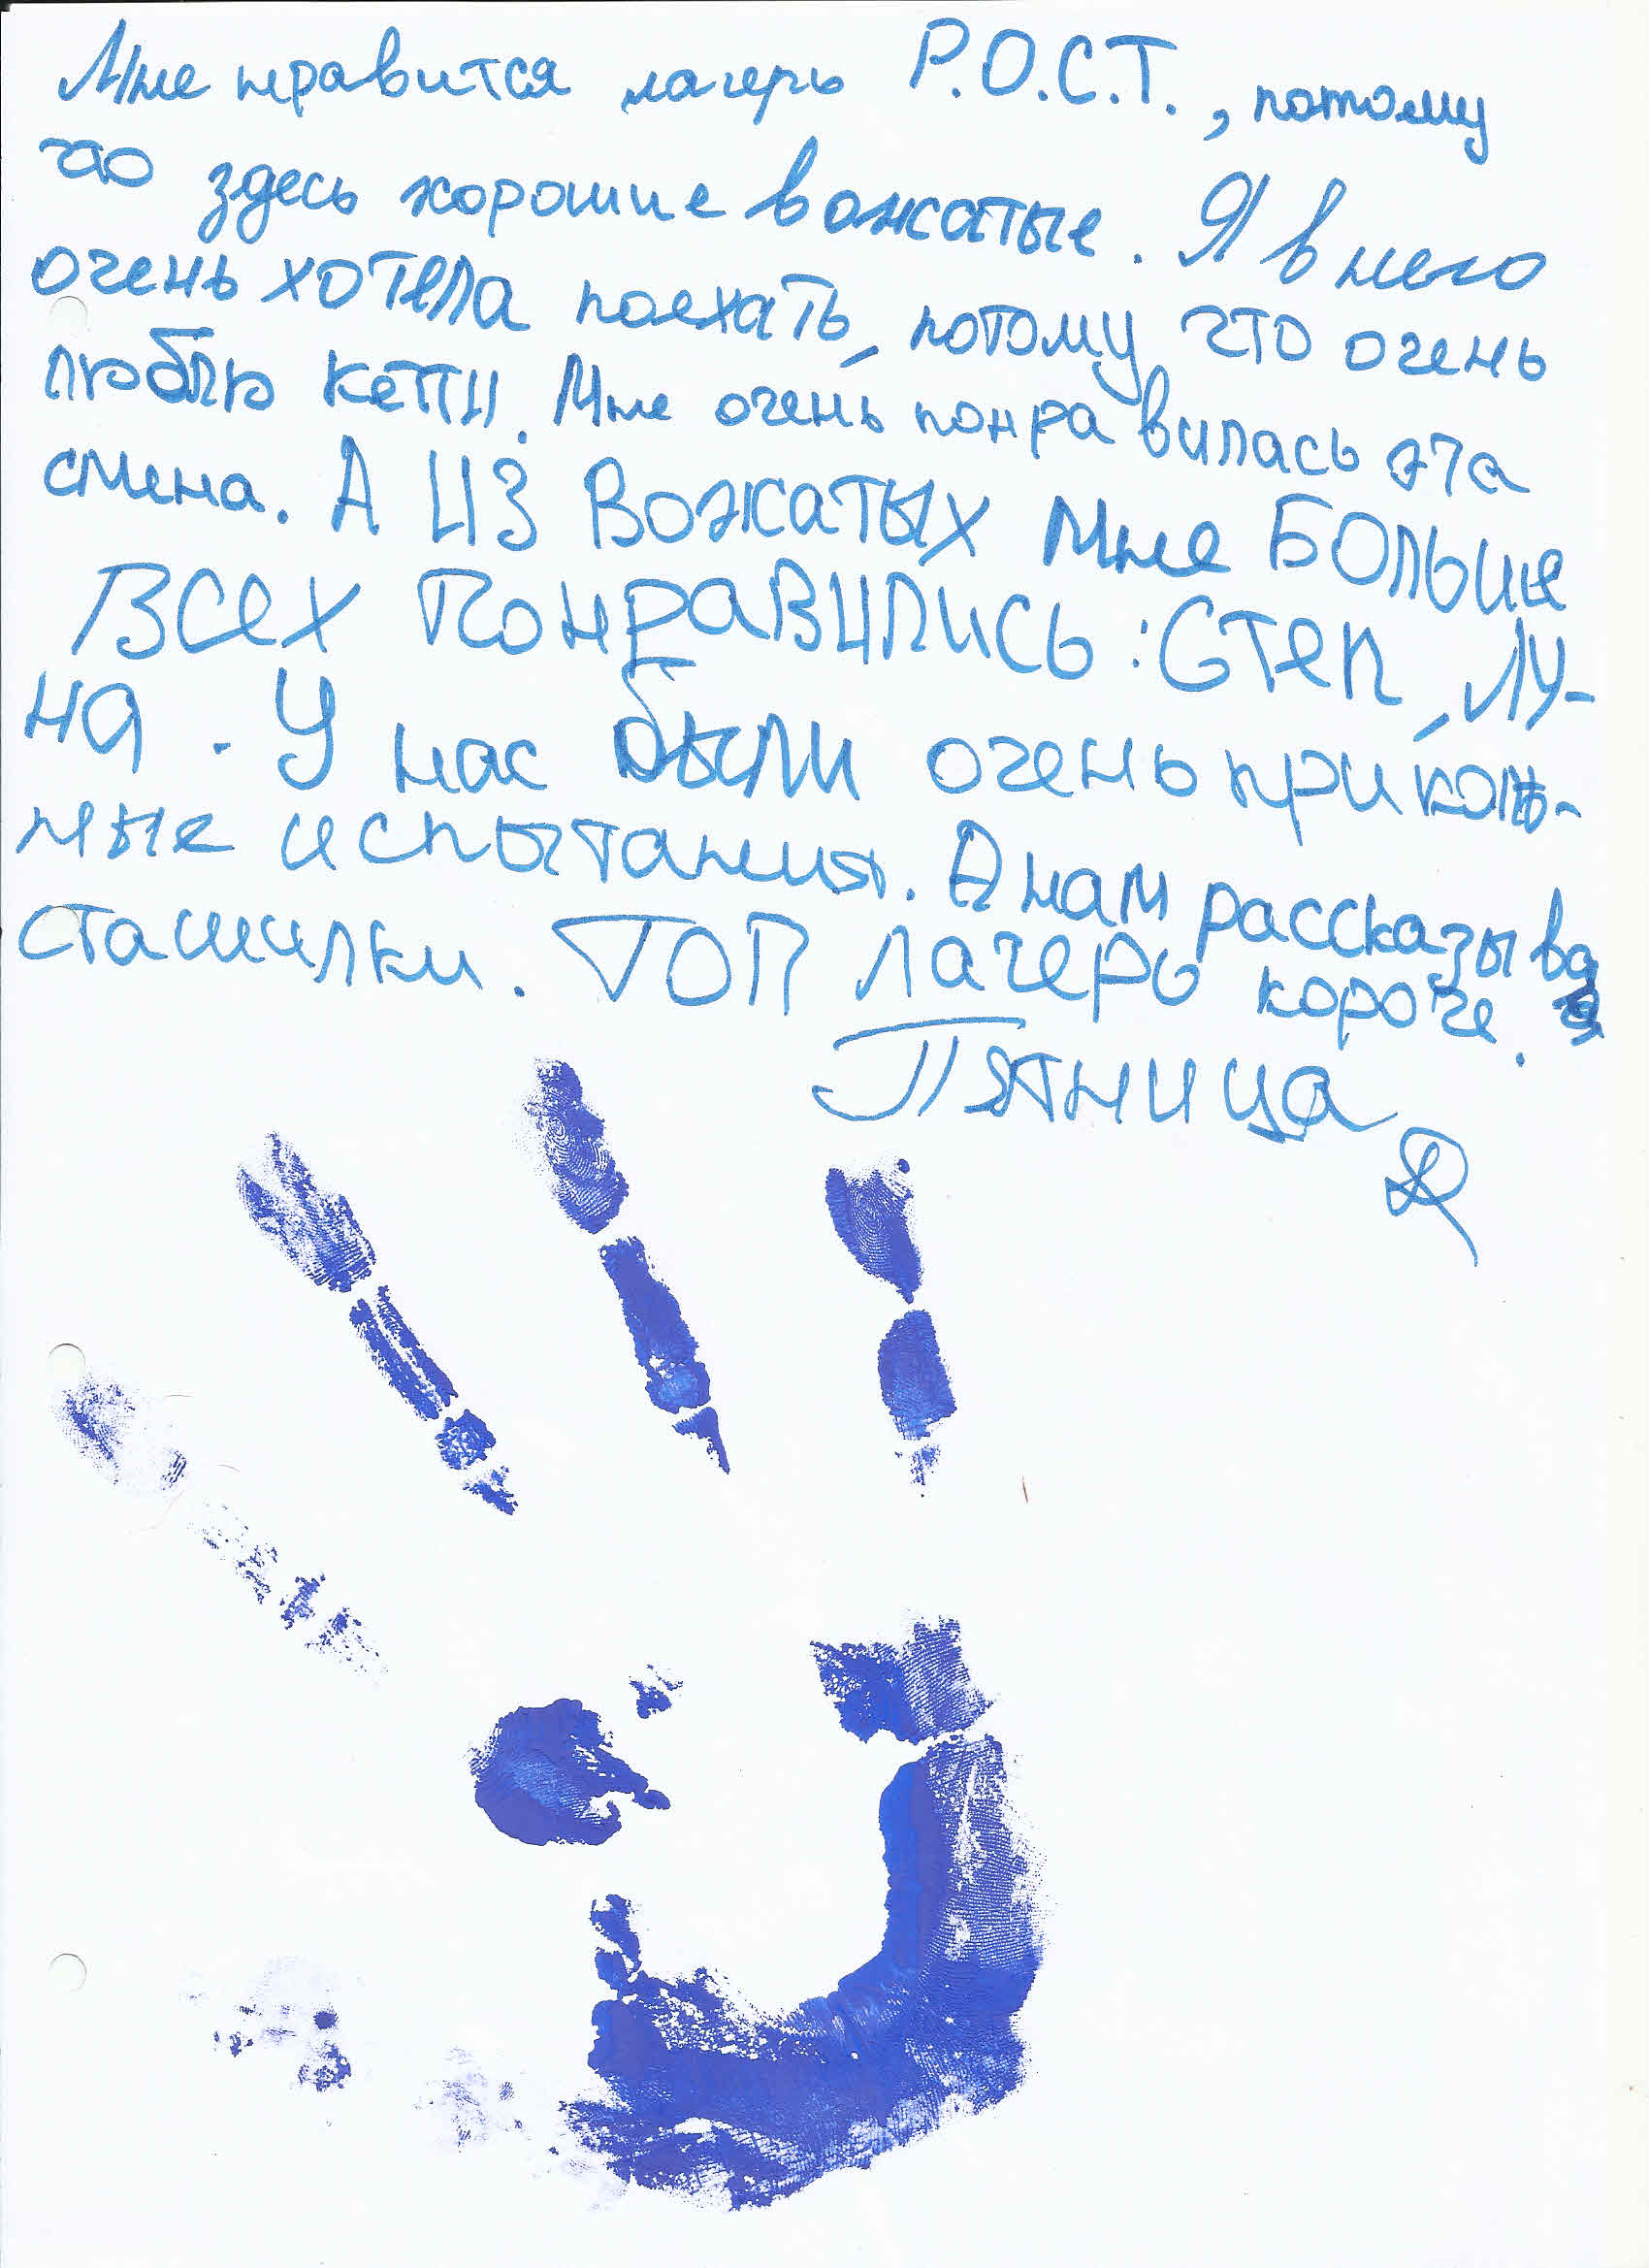 Мне нравится лагерь Р.О.С.Т., потому
что здесь хорошие вожатые. Я в него
очень хотела поехать, потому что очень
люблю Кетти. Мне очень понравилась эта
смена. А ИЗ Вожатых Мне БОльше
ВСех Понравились: Степ, Лу-
на. У нас были очень прикольн-
ные испытания. А нам рассказывал
сташилки. ТОП лагерь короче.
Пятница